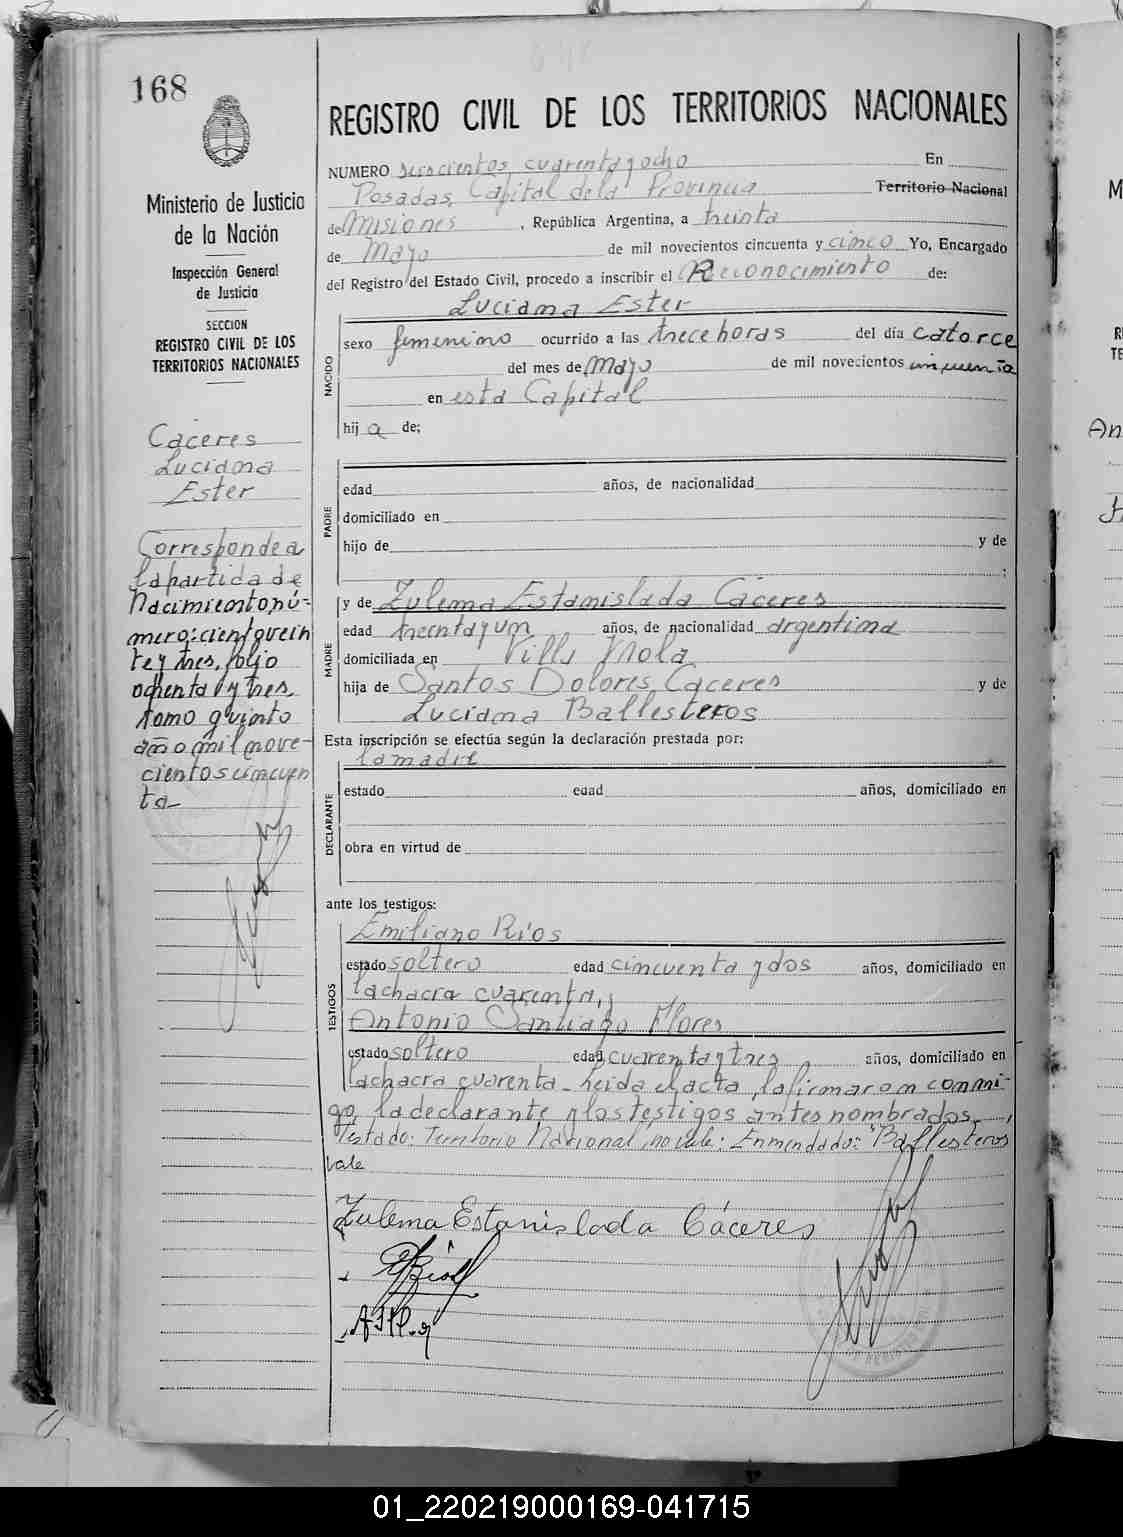 168
Ministerio de Justicia
de la Nación
Inspección General
de Justicia
SECCION
REGISTRO CIVIL DE LOS
TERRITORIOS NACIONALES
Cáceres
Luciana
Ester
Corresponde a
la partida de
Nacimiento nú-
mero: ciento vein
te y tres, folio
ochenta y tres,
tomo quinto
año mil nove-
cientos cincuen
ta—
REGISTRO CIVIL DE LOS TERRITORIOS NACIONALES
NUMERO seiscientos cuarenta y ocho En
Posadas, Capital de la Provincia Territorio Nacional
de Misiones, República Argentina, a treinta
de Mayo de mil novecientos cincuenta y cinco Yo, Encargado
del Registro del Estado Civil, procedo a inscribir el Reconocimiento de:
Luciana Ester
NACIDO
sexo femenino ocurrido a las trece horas del día catorce
del mes de Mayo de mil novecientos cincuenta
en esta Capital
hij a de;
PADRE
edad años, de nacionalidad
domiciliado en
hijo de y de
;
MADRE
y de Zulema Estanislada Cáceres
edad treinta y un años, de nacionalidad argentina
domiciliada en Villa
hija de Santos Dolores Cáceres y de
Luciana Ballesteros
Esta inscripción se efectúa según la declaración prestada por:
la madre
DECLARANTE
estado edad años, domiciliado en
obra en virtud de
ante los testigos:
TESTIGOS
Emiliano Ríos
estado soltero edad cincuenta y dos años, domiciliado en
la chacra cuarenta, y
Antonio Santiago Flores
estado soltero edad cuarenta y tres años, domiciliado en
la chacra cuarenta - Leída el acta, la firmaron conmi-
go, la declarante y los testigos antes nombrados.
Testado: Territorio Nacional, no vale: Enmendado: "Ballesteros
vale
Zulema Estanislada Cáceres
01_220219000169-041715